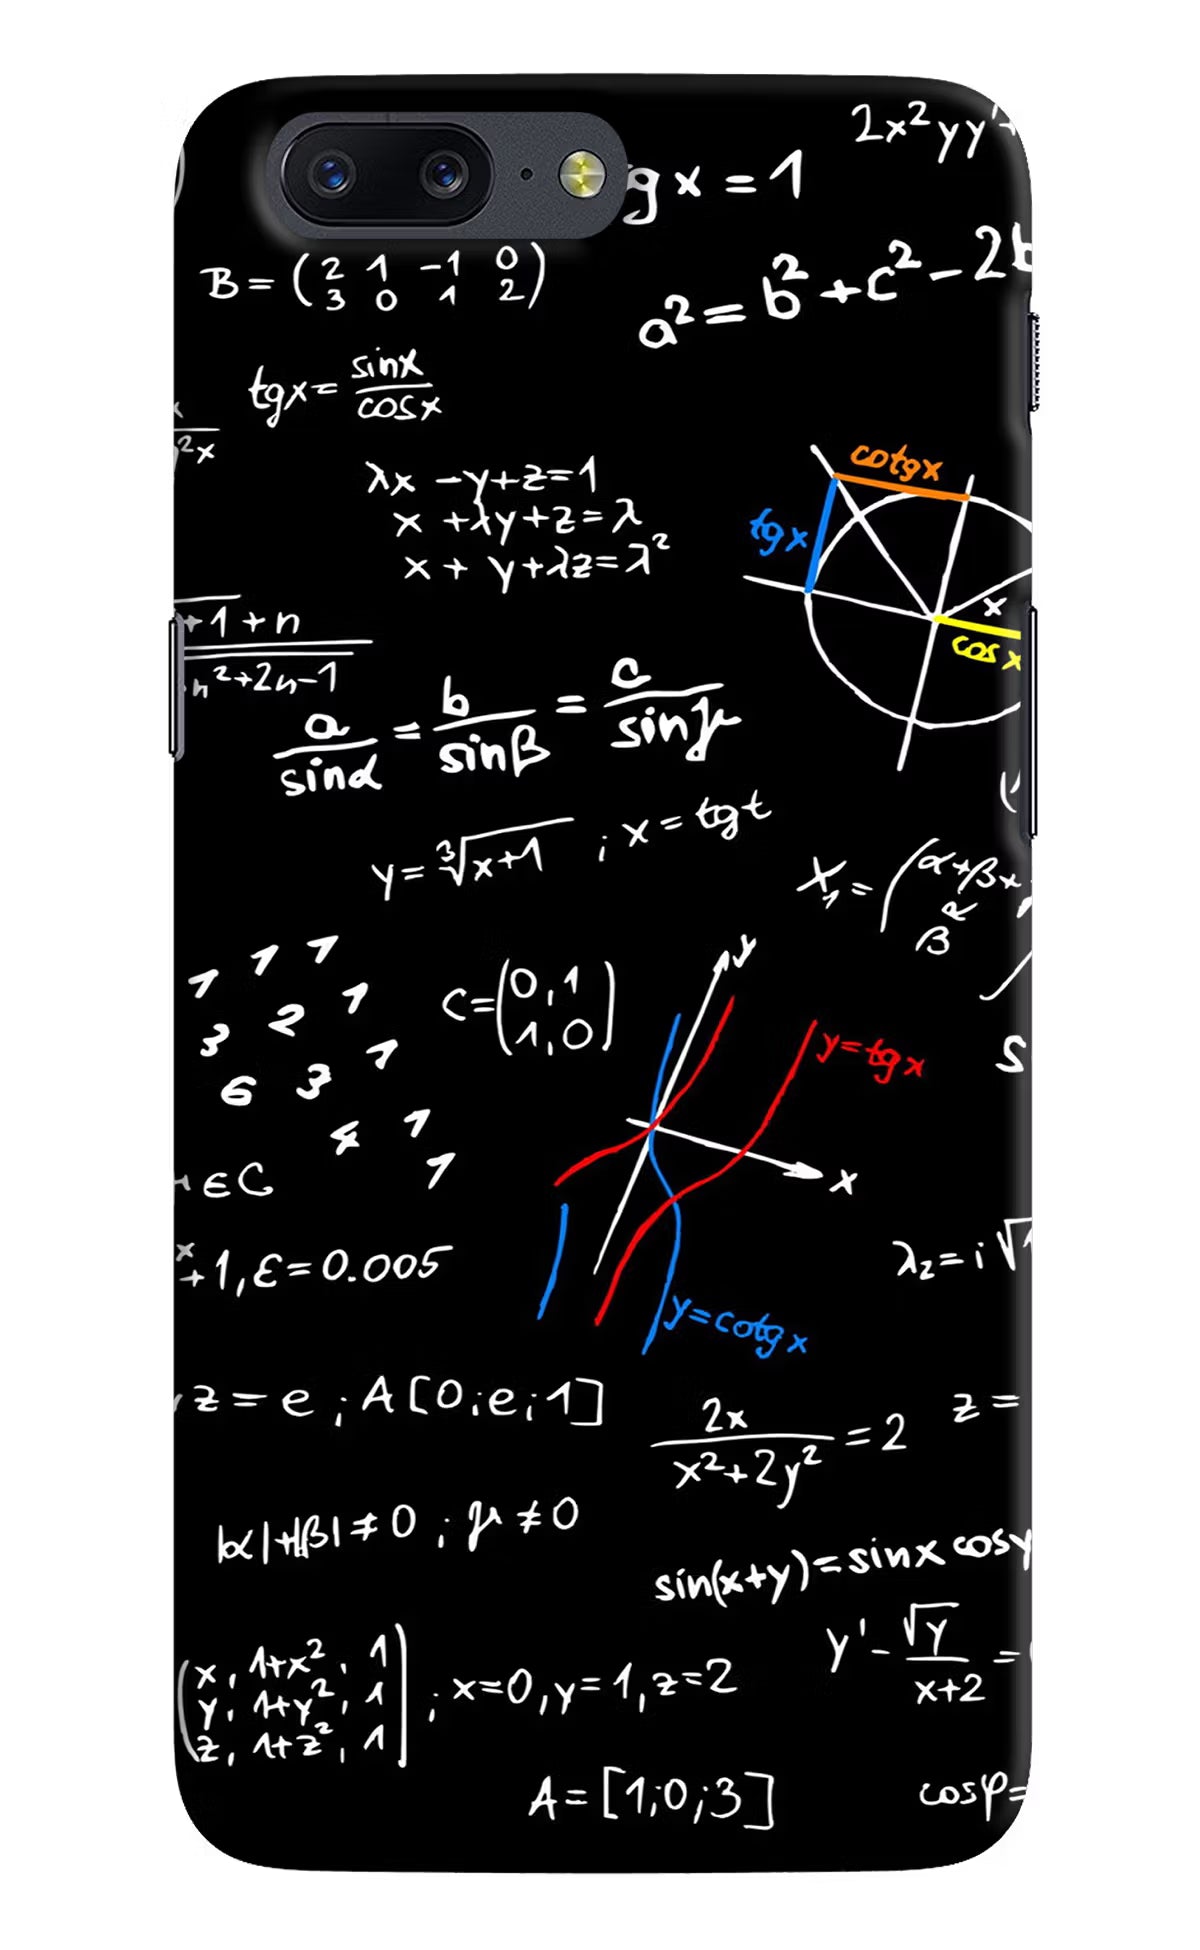 2x²yy'+
gx = 1
B = (2 1 -1 0
3 0 1 2)
a² = b² + c² - 2b
tgx = sinx
cosx
²x
λx - y + z = 1
x + λy + z = λ
x + y + λz = λ²
cotgx
tgx
x
cosx
+1 + n
n²+2n-1
a/sinα = b/sinβ = c/sinμ
y = ∛x+1 ; x = tgt
X₁ = (α+β+
β R
1 1 1
3 2 1
6 3 1
4 1
1
C = (0,1
1,0)
y
y=tgx
x
y=cotgx
S
∈C
x
+1, ε = 0.005
λ₂ = i√
z = e ; A[0;e;1]
2x
x²+2y² = 2
z =
|α|+|β| ≠ 0 ; μ ≠ 0
sin(x+y) = sinx cosy
y' - √y
x+2 =
(x, 1+x², 1
y, 1+y², 1
z, 1+z², 1) ; x=0, y=1, z=2
A = [1;0;3]
cosφ=